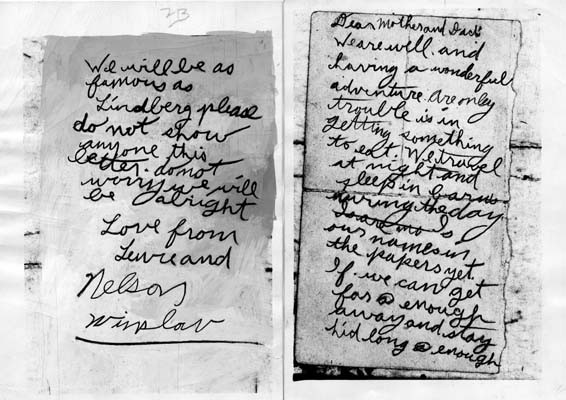 23
We will be as
famous as
Lindberg please
do not show
anyone this
letter. do not
worry we will
be alright
Love from
Lewie and
Nelson
Winslow
Dear Mother and Dad
We are will and
having a wonderful
adventure. Are only
trouble is in
getting something
to eat. We travel
at night and
sleep in barns
during the day
Is
our names in
the papers yet.
If we can get
far enough
away and stay
hid long enough